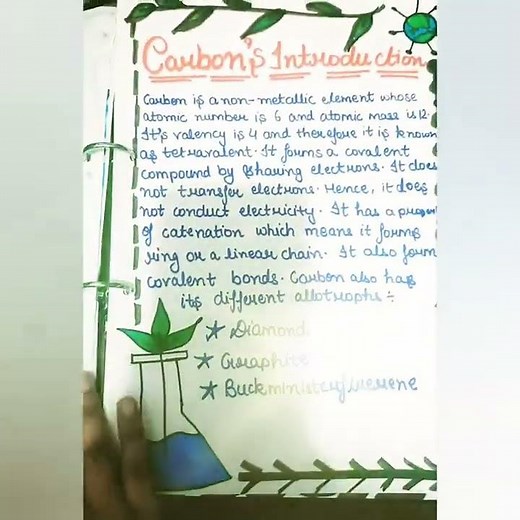 Carbon's Introduction
Carbon is a non-metallic element whose
atomic number is 6 and atomic mass is 12.
It's valency is 4 and therefore it is known
as tetravalent. It forms a covalent
compound by sharing electrons. It does
not transfer electrons. Hence, it does
not conduct electricity. It has a
of catenation which means it forms
ring or a linear chain. It also form
covalent bonds. Carbon also has
its different allotrophs :-
★ Diamond
★ Graphite
★ Buckminsterfluerene